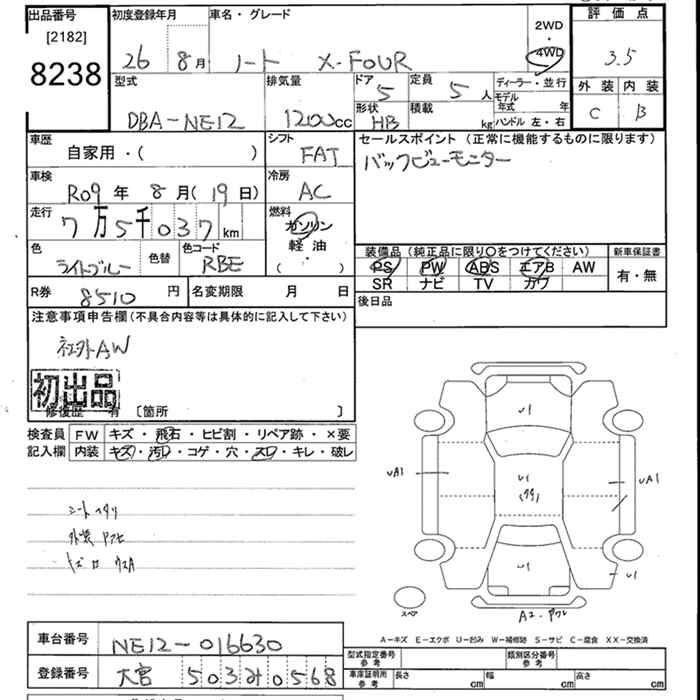 出品番号
[2182]
8238
初度登録年月
26 8月
車名・グレード
ノート X-FOUR
2WD
・
4WD
評価点
3.5
外装 内装
C B
型式
DBA-NE12
排気量
1200cc
ドア
5
定員
5人
形状
HB
積載
kg
ディーラー・並行
モデル年式 年
ハンドル 左・右
車歴
自家用・( )
シフト
FAT
セールスポイント (正常に機能するものに限ります)
バックビューモニター
車検
R09年 8月(19日)
冷房
AC
走行
7万5千037km
燃料
ガソリン
軽油
( )
色
ライトブルー
色替
色コード
RBE
装備品 (純正品に限り○をつけてください)
PS PW ABS エアB AW
SR ナビ TV カワ
新車保証書
有・無
R券 8510円
名変期限 月 日
後日品
注意事項申告欄 (不具合内容等は具体的に記入して下さい)
社外AW
初出品
修復歴 有 〔箇所 〕
検査員記入欄
FW キズ・飛石・ヒビ割・リペア跡・×要
内装 キズ・汚レ・コゲ・穴・スレ・キレ・破レ
シートヘタリ
U1
UA1
U1
UA1
U1
U1
スペア
A-キズ E-エクボ U-凹み W-補修跡 S-サビ C-腐食 XX-交換済
車台番号 NE12-016630
登録番号 大宮 503 み 0568
型式指定番号 参考
類別区分番号 参考
車庫証明用 参考
長さ cm
幅 cm
高さ cm